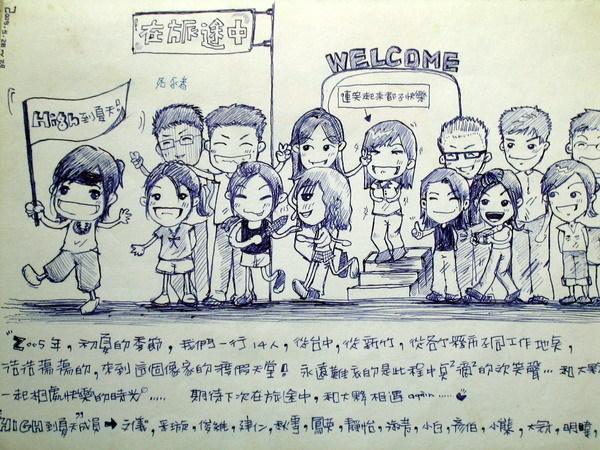 2005.5.28~29
在旅途中
WELCOME
High到夏天"
連笑起來都不快樂
"2005年,初夏的季節,我們一行14人,從台中,從新竹,從各個不同工作地點,
浩浩蕩蕩的,來到這個像家的渡假天堂!永遠難忘的是此程中爽²衝²的笑聲…和大夥
一起相處快樂的時光".....期待下次在旅途中,和大夥相遇again.....
"HIGH到夏天"成員→文儀,俊雄,建仁,秋雪,鳳英,靜怡,小白,彥伯,小龔,大斌,明暐,